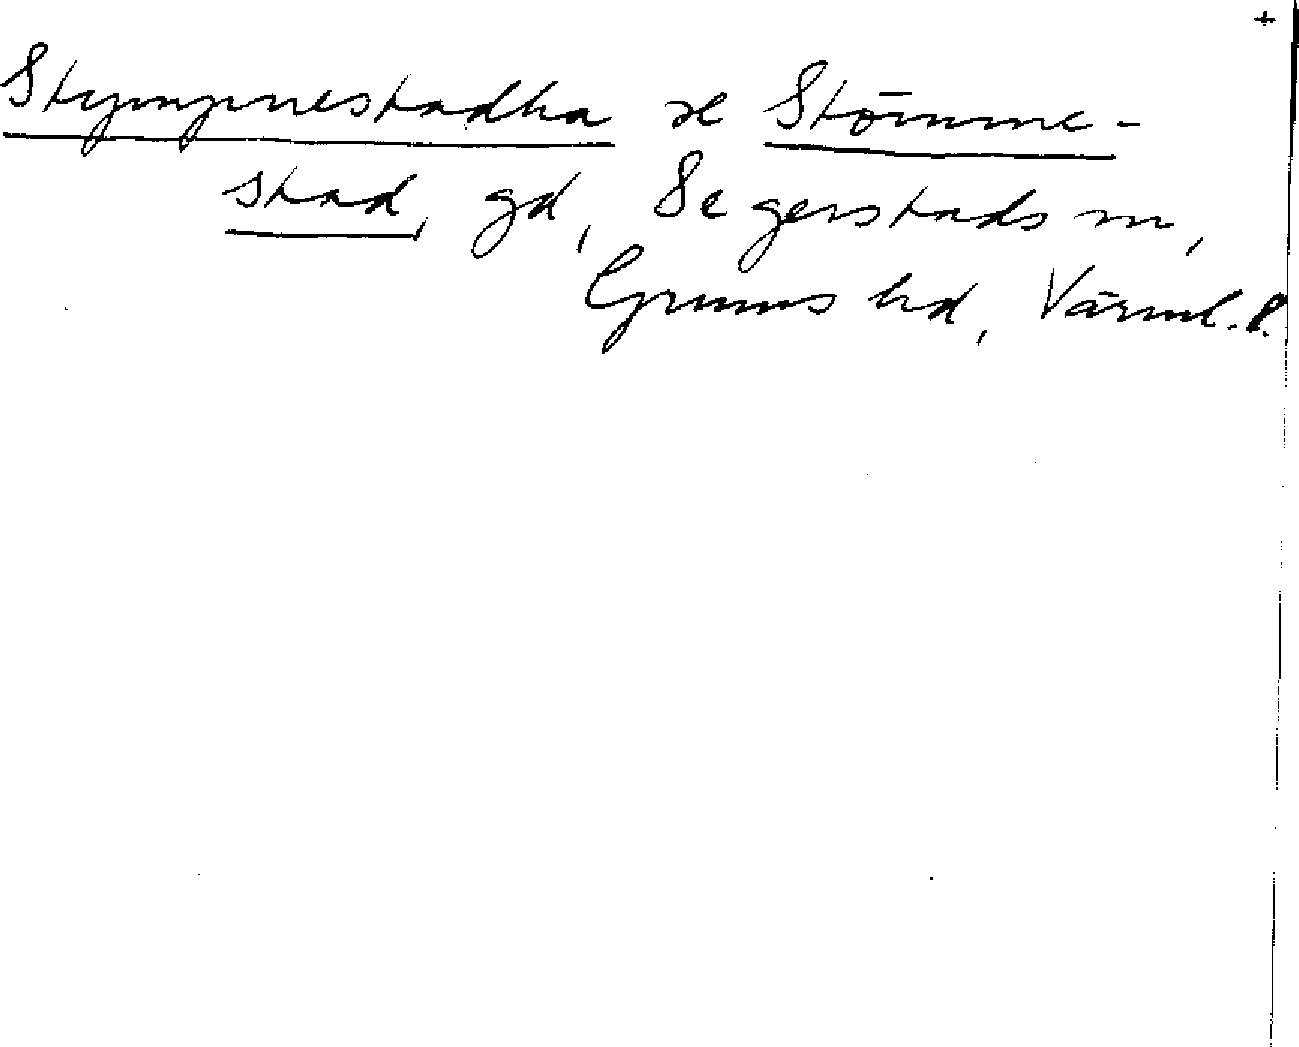 +
Stympnestadha se Stömme-
stad, gd, Segerstads sn,
Grums hd, Värml. l.